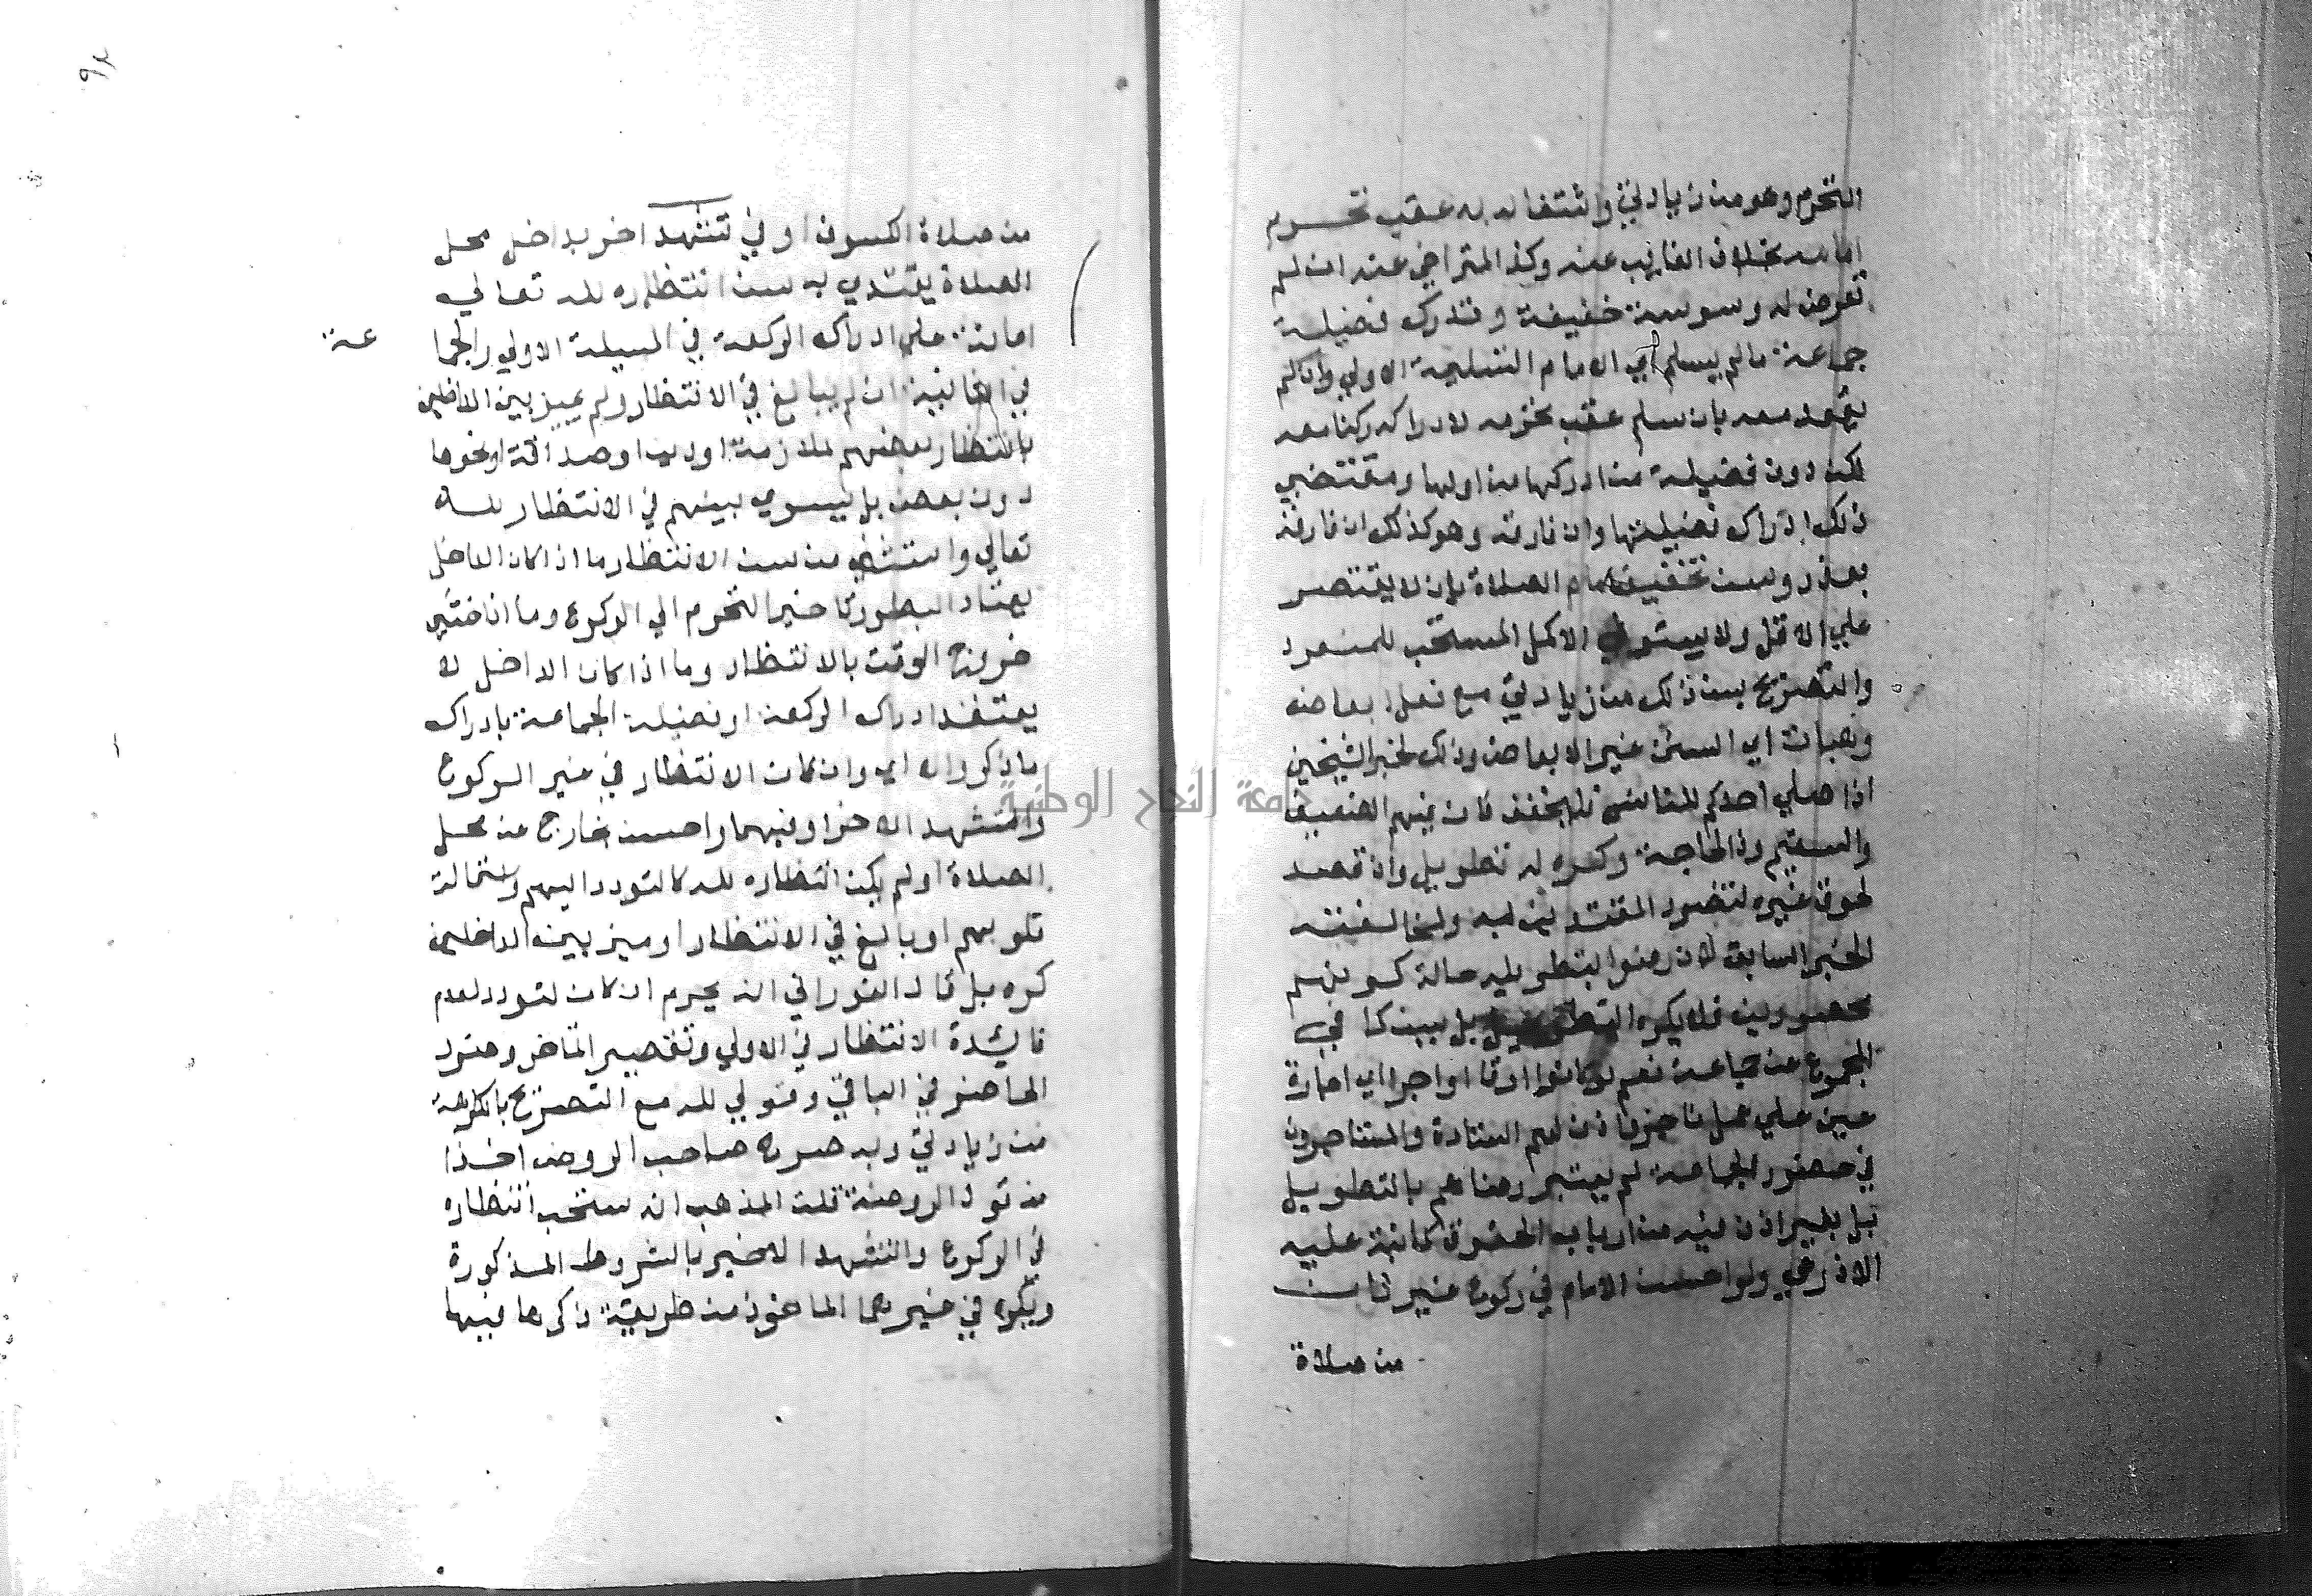 التحرم وهو من زيادتي واشتغاله به عقب تحرم
امامه بخلاف الغايب عنه وكذا المتراخي عنه ان لم
تعرض له وسوسة خفيفة وتدرك فضيلة
جماعة ما لم يسلم اي الامام التسليمة الاولي وان لم
يقعد معه بان سلم عقب تحرمه لادراكه ركنا معه
لكن دون فضيلة من ادركها من اولها ومقتضي
ذلك ادراك فضيلتها وان فارقه وهو كذلك ان فارقه
بعذر وسن تخفيف امام الصلاة بان لا يقتصر
علي الاقل ولا يستوفي الاكمل المستحب للمنفرد
والتصريح بسن ذلك من زيادتي مع فعل ابعاض
وهيات اي السنن غير الابعاض وذلك لخبر الشيخين
اذا صلي احدكم للناس فليخفف فان فيهم الضعيف
والسقيم وذا الحاجة وكره له تطويل وان قصد
لحوق غيره لتضرر المقتدين به ولمخالفته
للخبر السابق لا ان رضوا بتطويله حالة كونهم
محصورين فلا يكره التطويل بل يسن كما في
المجموع عن جماعة نعم لو كانوا ارقا او اجرا اي اجارة
عين علي عمل ناجز واذن لهم السادة والمستاجرون
في حضور الجماعة لم يعتبر رضاهم بالتطويل
بل بغير اذن فيه من ارباب الحقوق كما نبه عليه
الاذرعي ولو احس الامام في ركوع غير ثان
من صلاة
من صلاة الكسوف او في تشهد اخر بداخل محل
الصلاة يقتدي به سن انتظاره لله تعالي
اعانة علي ادراك الركعة في المسيلة الاولي والجما
عة
في الثانية ان لم يبالغ في الانتظار ولم يميز بين الداخلين
بانتظار بعضهم لملازمة او دين او صداقة او نحوها
دون بعض بل يسوي بينهم في الانتظار لله
تعالي واستثني من سن الانتظار ما اذا كان الداخل
يعتاد البطؤ وتاخير التحرم الي الركوع وما اذا خشي
خروج الوقت بالانتظار وما اذا كان الداخل لا
يعتقد ادراك الركعة او فضيلة الجماعة بادراك
ما ذكر والا اي وان كان الانتظار في غير الركوع
والتشهد الاخر او فيهما واحسن بخارج عن محل
الصلاة او لم يكن انتظاره لله كالتودد اليهم واستمالة
قلوبهم او بالغ في الانتظار او ميز بين الداخلين
كره بل قال الفوراني انه يحرم ان كان لتودد لعدم
فائدة الانتظار في الاولي وتقصير المتاخر وضرر
الحاضر في الباقي وقولي لله مع التصريح بالكراهة
من زيادتي وبه صرح صاحب الروض اخذا
من قول الروضة قلت المذهب انه يستحب انتظاره
في الركوع والتشهد الاخير بالشروط المذكورة
ويكره في غيرهما الماخوذ من طريقة ذكرها فيها
جامعة النجاح الوطنية